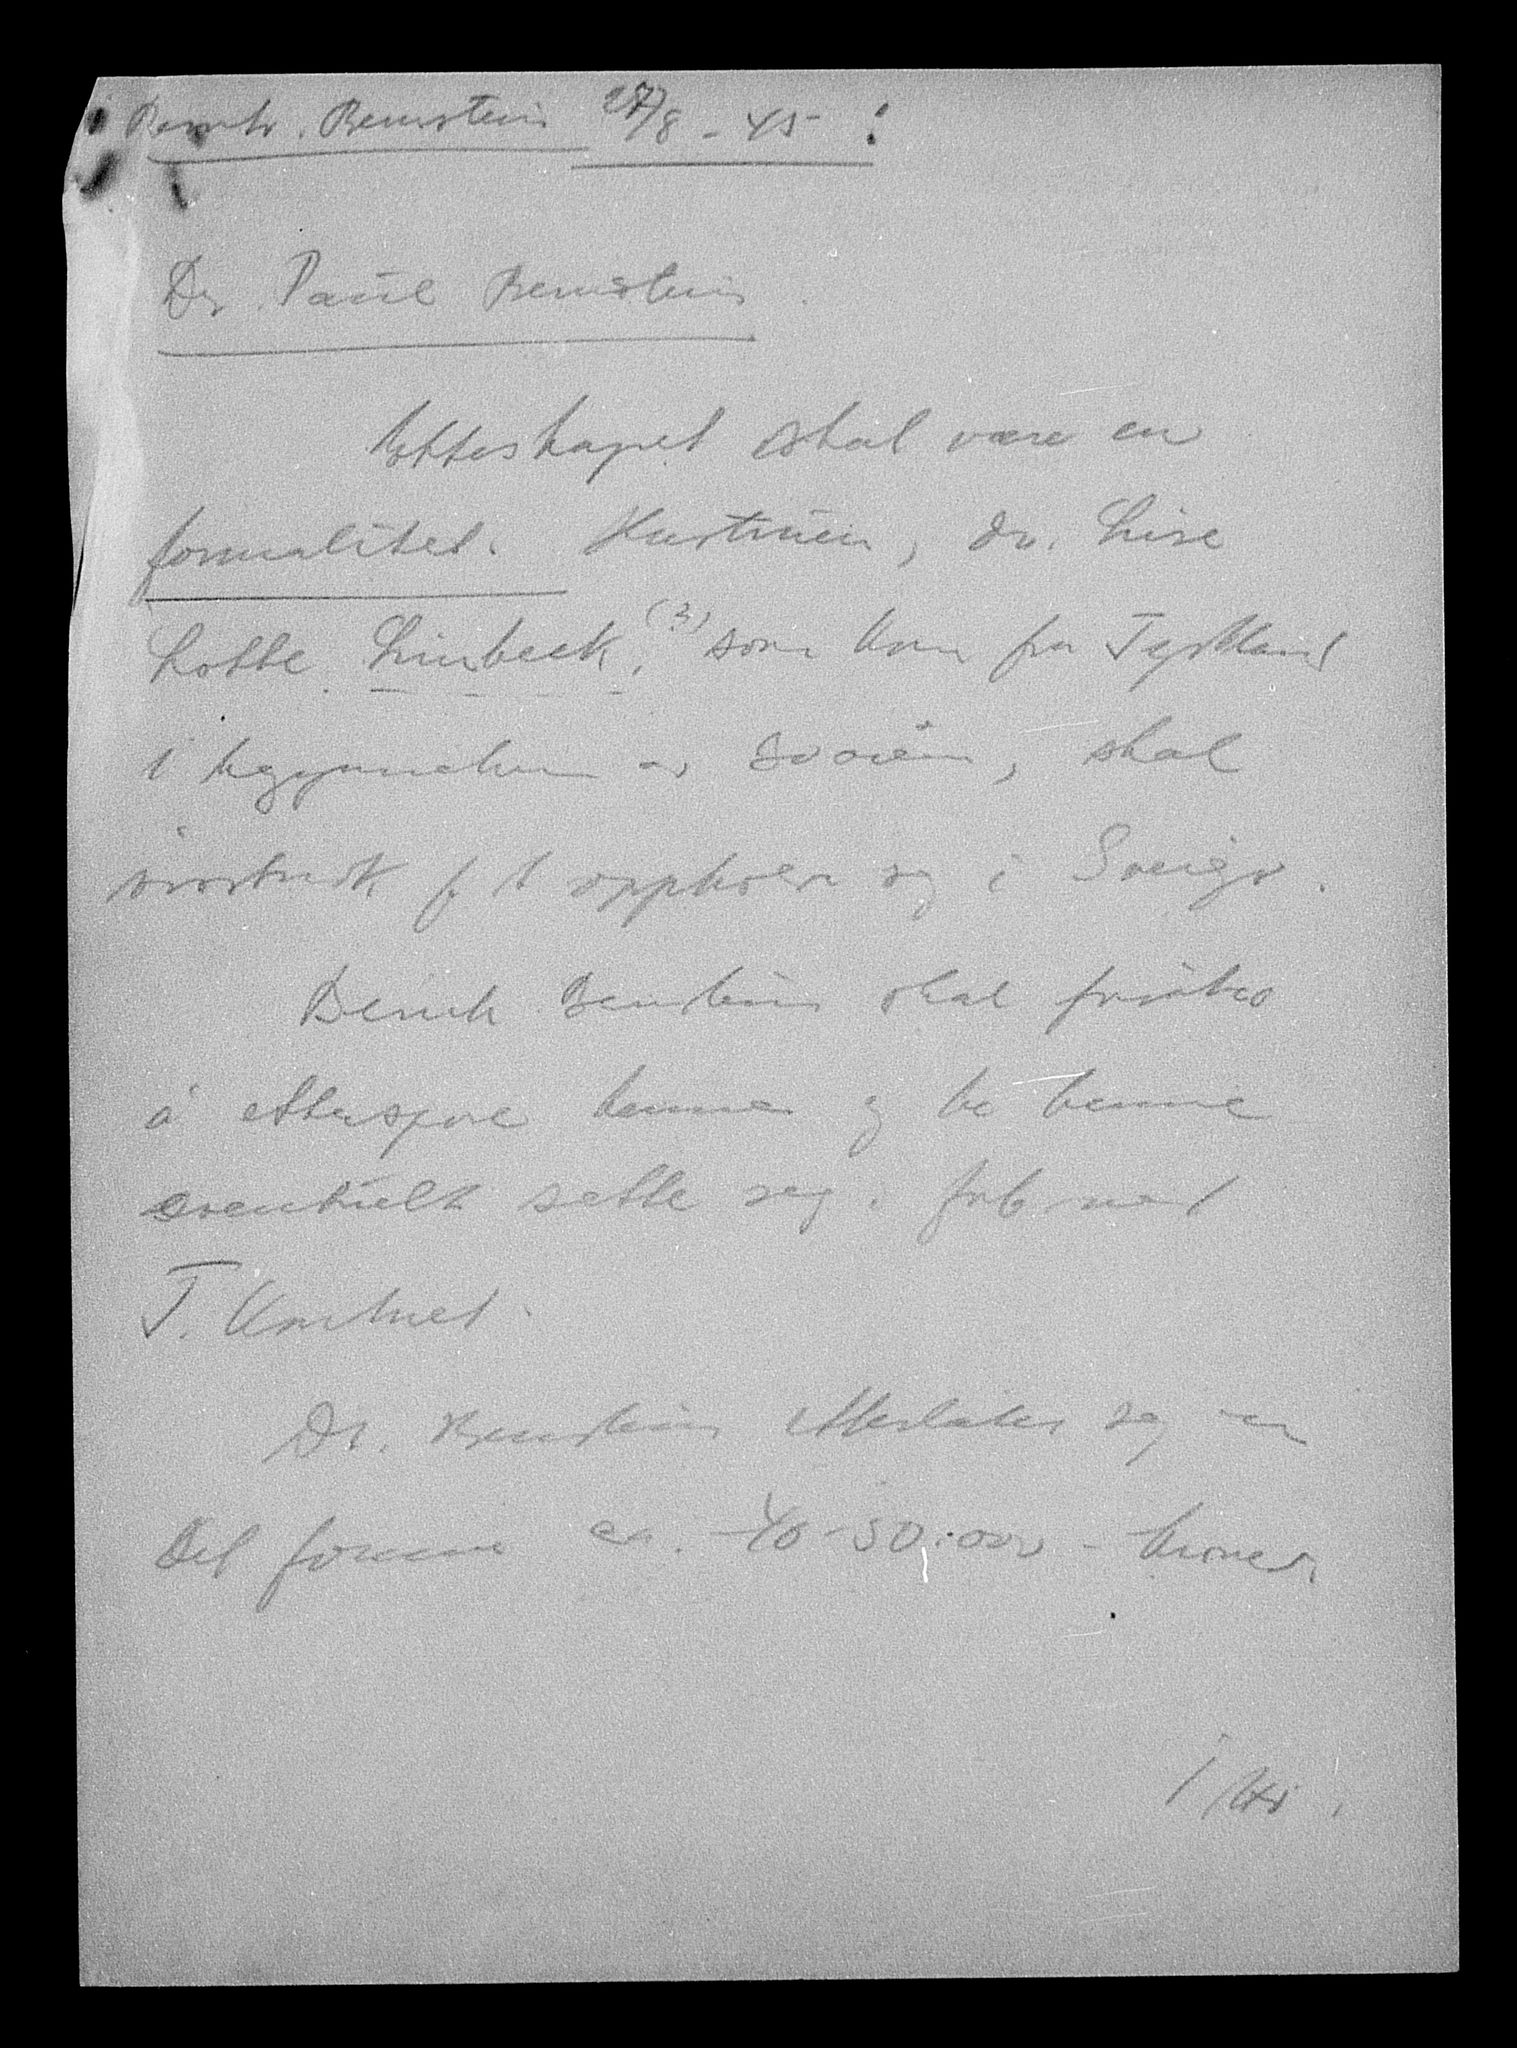 Bernh. Bernstein 27/8 - 45 :
Dr. Paul Bernstein.
Ekteskapet skal være en
formalitet. Hustruen, dr. Lise
Lotte Linbeck, (?) som kom fra Tyskland
i begynnelsen av 30 åren, skal
f. t. oppholde seg i Sverige.
Bernh. Bernstein skal forsøke
å etterspore henne og be henne
eventuelt sette seg i forb. med
T.
Dr. Bernstein etterlater seg en
del formue ca. 40-50.000 - kroner